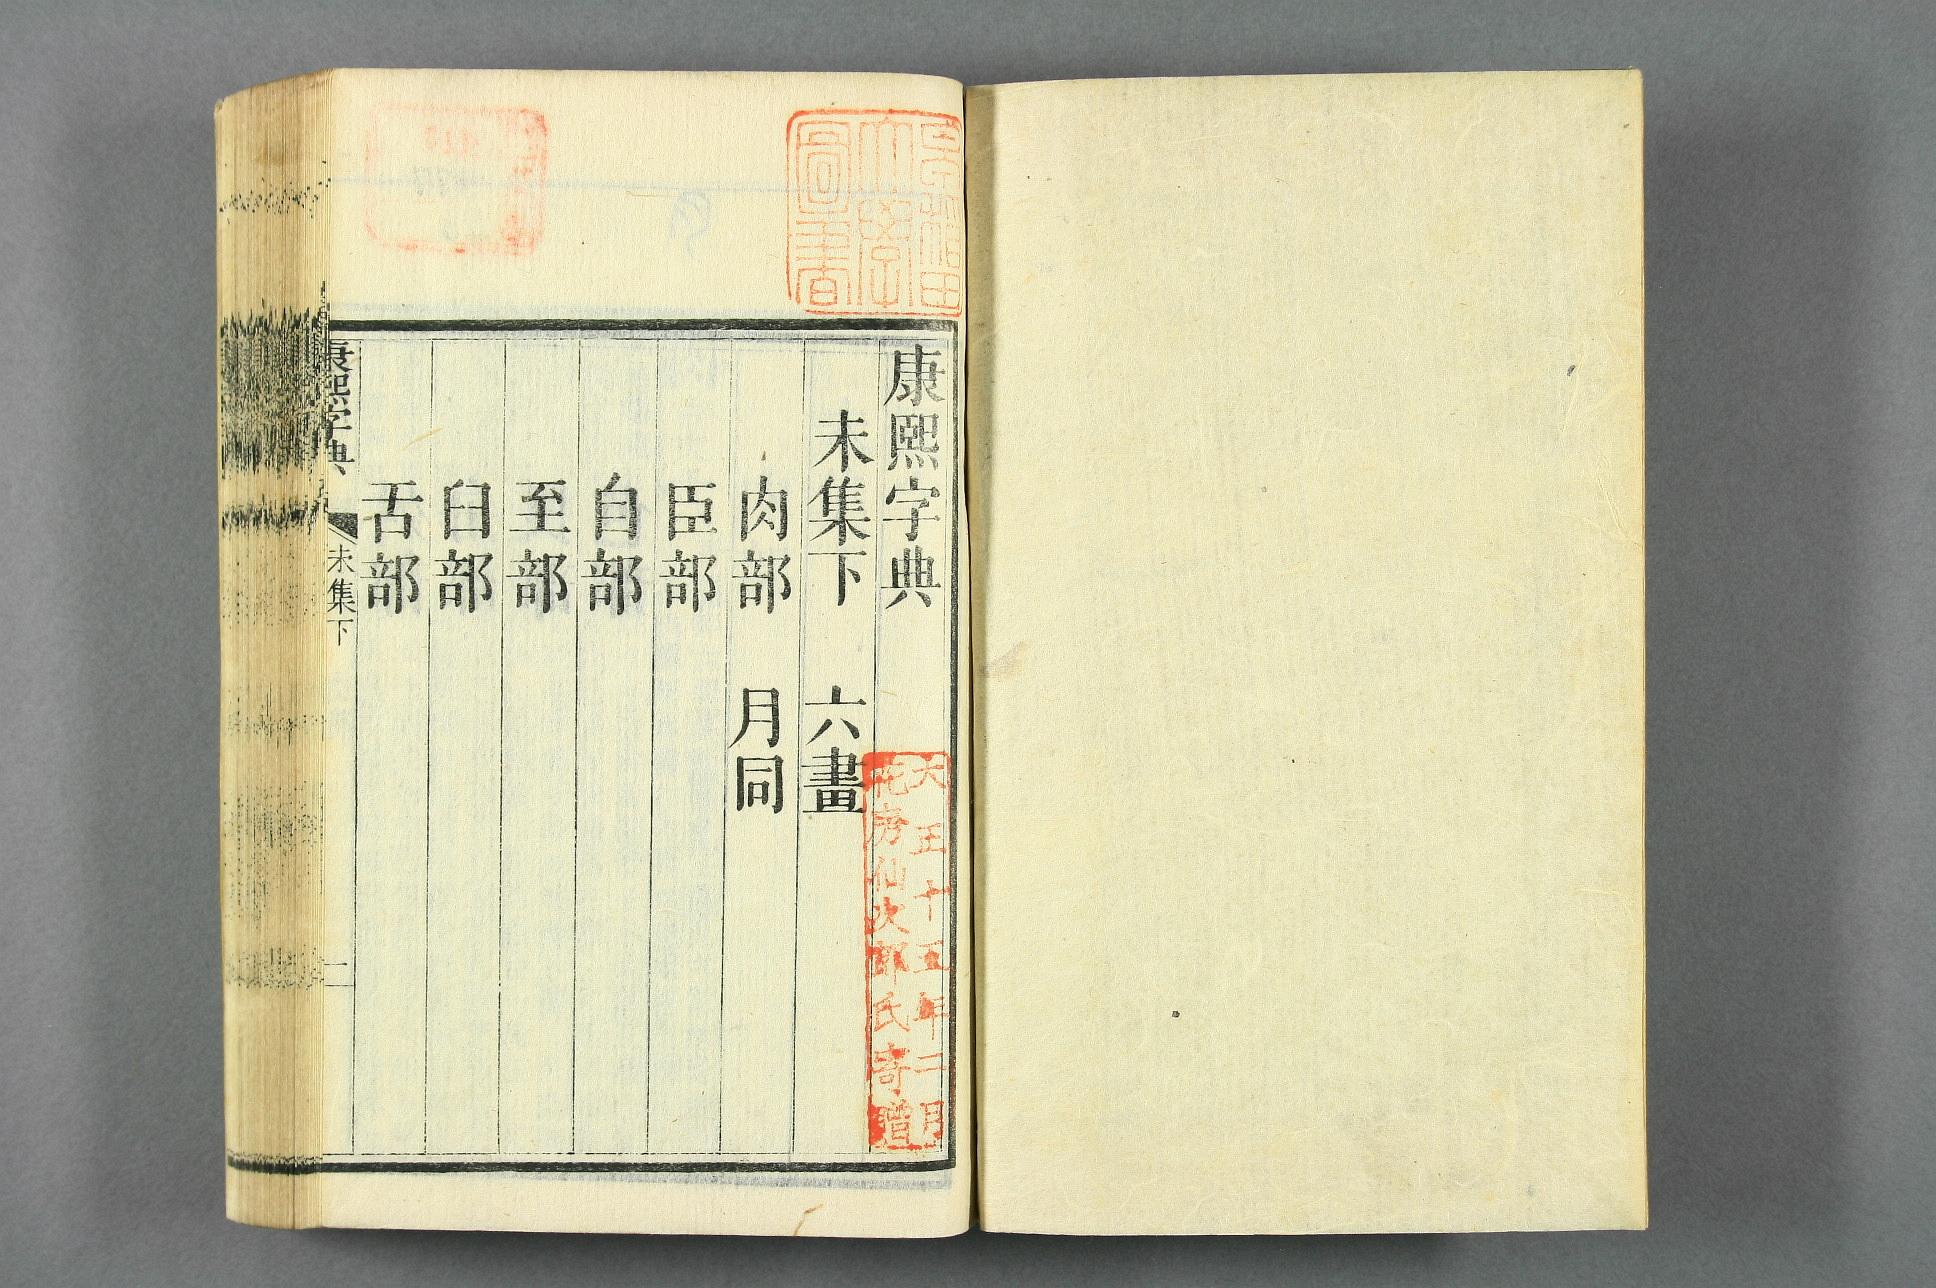 康熙字典
未集下 六畫
肉部 月同
臣部
自部
至部
臼部
舌部
康熙字典
未集下
一
早稲田
大學
圖書
大正十五年二月
花房仙次郎氏寄贈